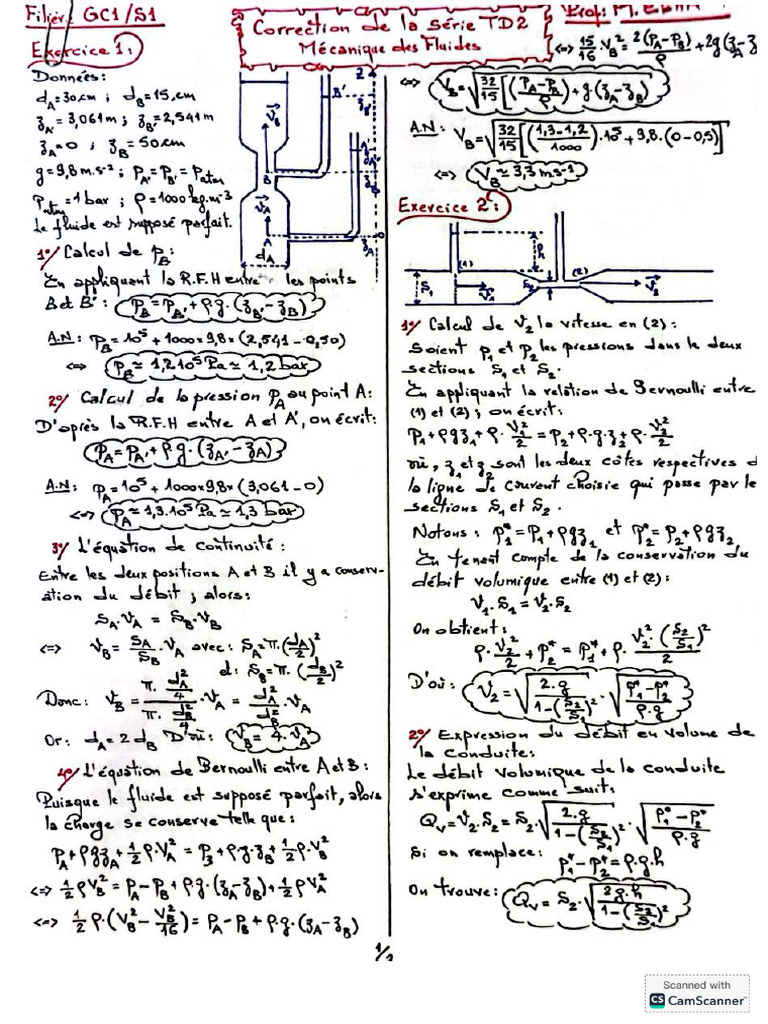 Filière GC1/S1
Correction de la série TD2
Mécanique des Fluides
Prof:
Exercice 1:
Données:
d_A=30cm ; d_B=15cm
z_A' = 3,061m ; z_B' = 2,541m
z_A=0 ; z_B = 50cm
g=9,8m.s⁻² ; P_A'=P_B'=P_atm
P_atm=1bar ; ρ=1000kg.m⁻³
Le fluide est supposé parfait.
z
B'
z_B'
V_B
A'
z_A'
B
z_B
V_A
A
z_A
d_A
1°/ Calcul de P_B:
En appliquant la R.F.H entre les points
B et B': P_B=P_B'+ρg.(z_B'-z_B)
A.N: P_B=10⁵+1000×9,8×(2,541-0,50)
⇔ P_B≃1,2.10⁵Pa≃1,2bar
2°/ Calcul de la pression P_A au point A:
D'après la R.F.H entre A et A', on écrit:
P_A=P_A'+ρg.(z_A'-z_A)
A.N: P_A=10⁵+1000×9,8×(3,061-0)
⇔ P_A≃1,3.10⁵Pa≃1,3 bar
3°/ L'équation de continuité:
Entre les deux positions A et B il y a conserv-
ation du débit; alors:
S_A.V_A = S_B.V_B
⇔ V_B=S_A/S_B.V_A avec: S_A=π.(d_A/2)²
et: S_B=π.(d_B/2)²
Donc: V_B=(π.d_A²/4)/(π.d_B²/4).V_A=d_A²/d_B².V_A
Or: d_A=2d_B D'où: V_B=4.V_A
4°/ L'équation de Bernoulli entre A et B:
Puisque le fluide est supposé parfait, alors
la charge se conserve telle que:
P_A+ρgz_A+1/2ρ.V_A²=P_B+ρ.g.z_B+1/2ρ.V_B²
⇔ 1/2ρV_B²=P_A-P_B+ρ.g.(z_A-z_B)+1/2ρV_A²
⇔ 1/2ρ.(V_B²-V_B²/16)=P_A-P_B+ρ.g.(z_A-z_B)
⇔ 15/16V_B²=2(P_A-P_B)/ρ+2g(z_A-z
⇔ V_B=√(32/15[(P_A-P_B)/ρ+g.(z_A-z_B)])
A.N: V_B=√(32/15[(1,3-1,2)/1000.10⁵+9,8.(0-0,5)])
⇔ V_B≃3,3m.s⁻¹
Exercice 2:
h
(1)
(2)
S_1
V_1
S_2
V_2
1°/ Calcul de V_2 la vitesse en (2):
Soient P_1 et P_2 les pressions dans le deux
sections S_1 et S_2.
En appliquant la relation de Bernoulli entre
(1) et (2); on écrit:
P_1+ρgz_1+ρ.V_1²/2=P_2+ρ.g.z_2+ρ.V_2²/2
où, z_1 et z_2 sont les deux côtes respectives d
la ligne de courent choisie qui passe par le
sections S_1 et S_2.
Notons: P_1*=P_1+ρgz_1 et P_2*=P_2+ρgz_2
En tenent compte de la conservation du
débit volumique entre (1) et (2):
V_1.S_1=V_2.S_2
On obtient:
ρ.V_2²/2+P_2*=P_1*+ρ.V_2².(S_2/S_1)²/2
D'où: V_2=√(2.g/(1-(S_2/S_1)²)).√((P_1*-P_2*)/(ρ.g))
2°/ Expression du débit en volume de
la conduite:
Le débit volumique de la conduite
s'exprime comme suit:
Q_v=V_2.S_2=S_2.√(2.g/(1-(S_2/S_1)²)).√((P_1*-P_2*)/(ρ.g))
Si on remplace: P_1*-P_2*=ρ.g.h
On trouve: Q_v=S_2.√(2g.h/(1-(S_2/S_1)²))
Scanned with
CS CamScanner